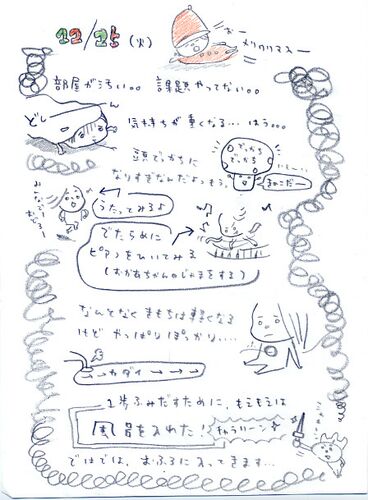 12/25(火)
おー
メリクリマスー
部屋が汚い。。 課題やってない。。
どしーん
気持ちが重くなる… はう。。。
頭でっかちに
なりすぎなんだよっもう。
でっかち
でっかち
きのこだー
うたってみる♪
でたらめに
ピアノをひいてみる
(おかあちゃんのじゃまをする)
なんとなくきもちは軽くなる
けど やっぱりぽっかり…
→→カダイ→→→→
1歩ふみだすために、もえもえは
風呂を入れた!
キャラリーン
ではでは、おふろに入ってきます…